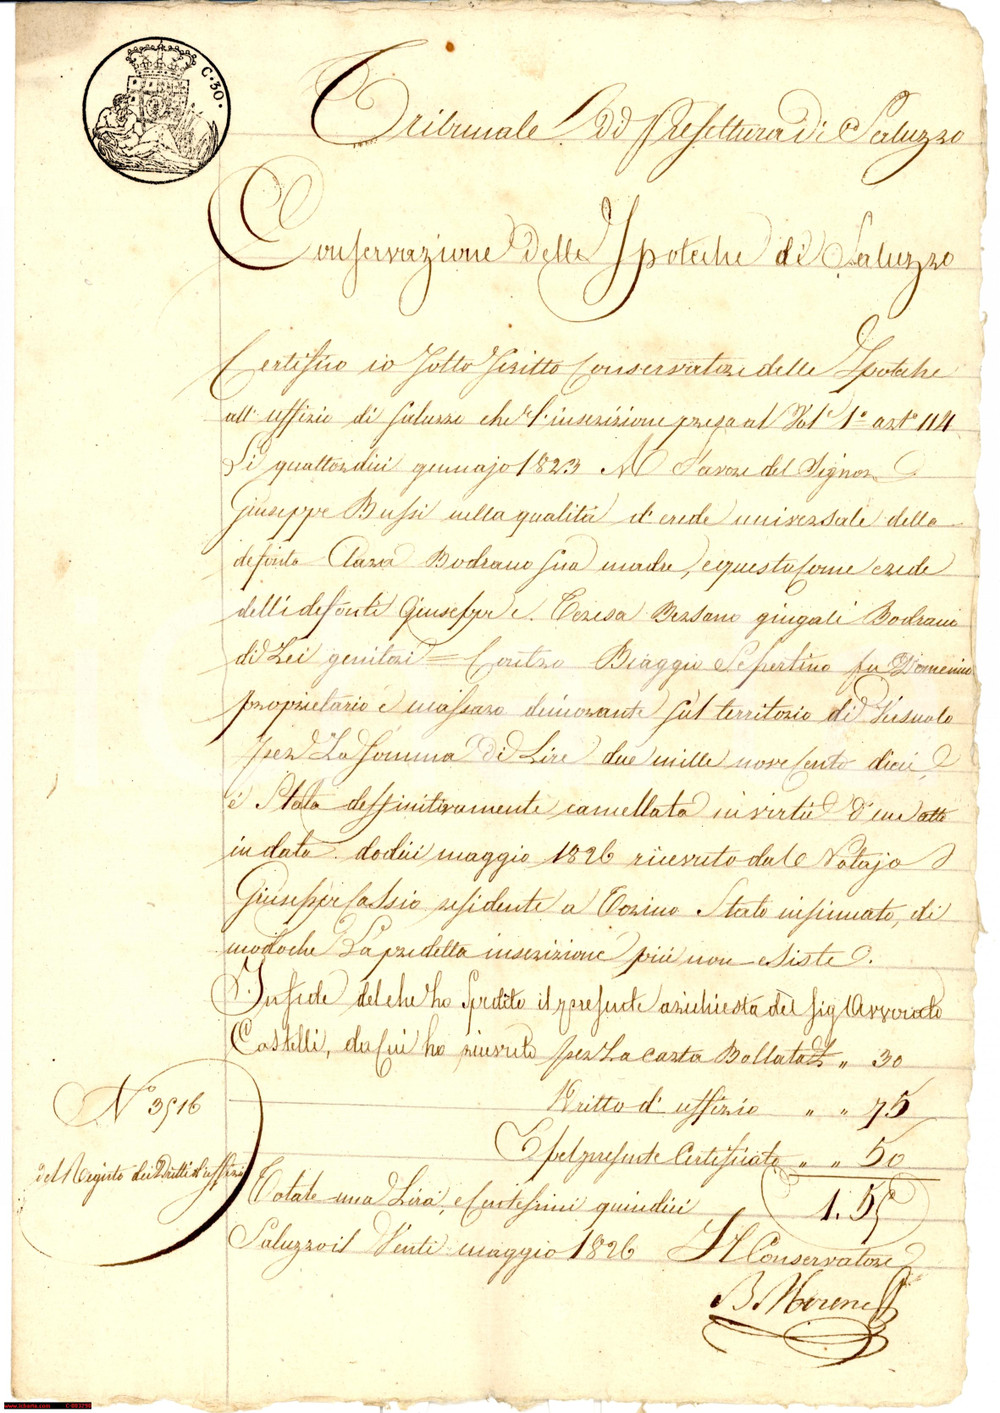 C. 30.
Tribunale di Prefettura di Saluzzo
Conservazione delle Ipoteche di Saluzzo
Certifico io sotto scritto Conservatore delle Ipoteche
all' uffizio di Saluzzo che l'inscrizione presa al Vol.e 1° art.° 114
Li quattordici gennajo 1823 A favore del Signor
Giuseppe Bussi nella qualità d'erede universale della
defonta Clara Bodrano sua madre, e questa come erede
delli defonti Giuseppe e Teresa Bersano giugali Bodrano
di Lei genitori = Contro Biaggio Sepertino fu Domenico
proprietario e massaro dimorante sul territorio di Versuolo
per La somma di Lire due mille nove cento dieci,
è Stata deffinitivamente cancellata in virtù d'un atto
in data dodici maggio 1826 ricevuto dal Notajo
Giuseppe Cassio residente a Torino Stato insinuato, di
modoche La predetta inscrizione più non esiste.
In fede del che ho spedito il presente a richiesta del Sig.r Avvocato
Castelli, da cui ho ricevuto per La carta Bollata £ " 30
Dritto d' uffizio " " 75
E pel presente Certificato " " 50
N° 3516
del Registro dei Dritti d'uffizio
Totale una Lira, e Centesimi quindici 1. 55
Saluzzo il Venti maggio 1826 Il Conservatore
B.